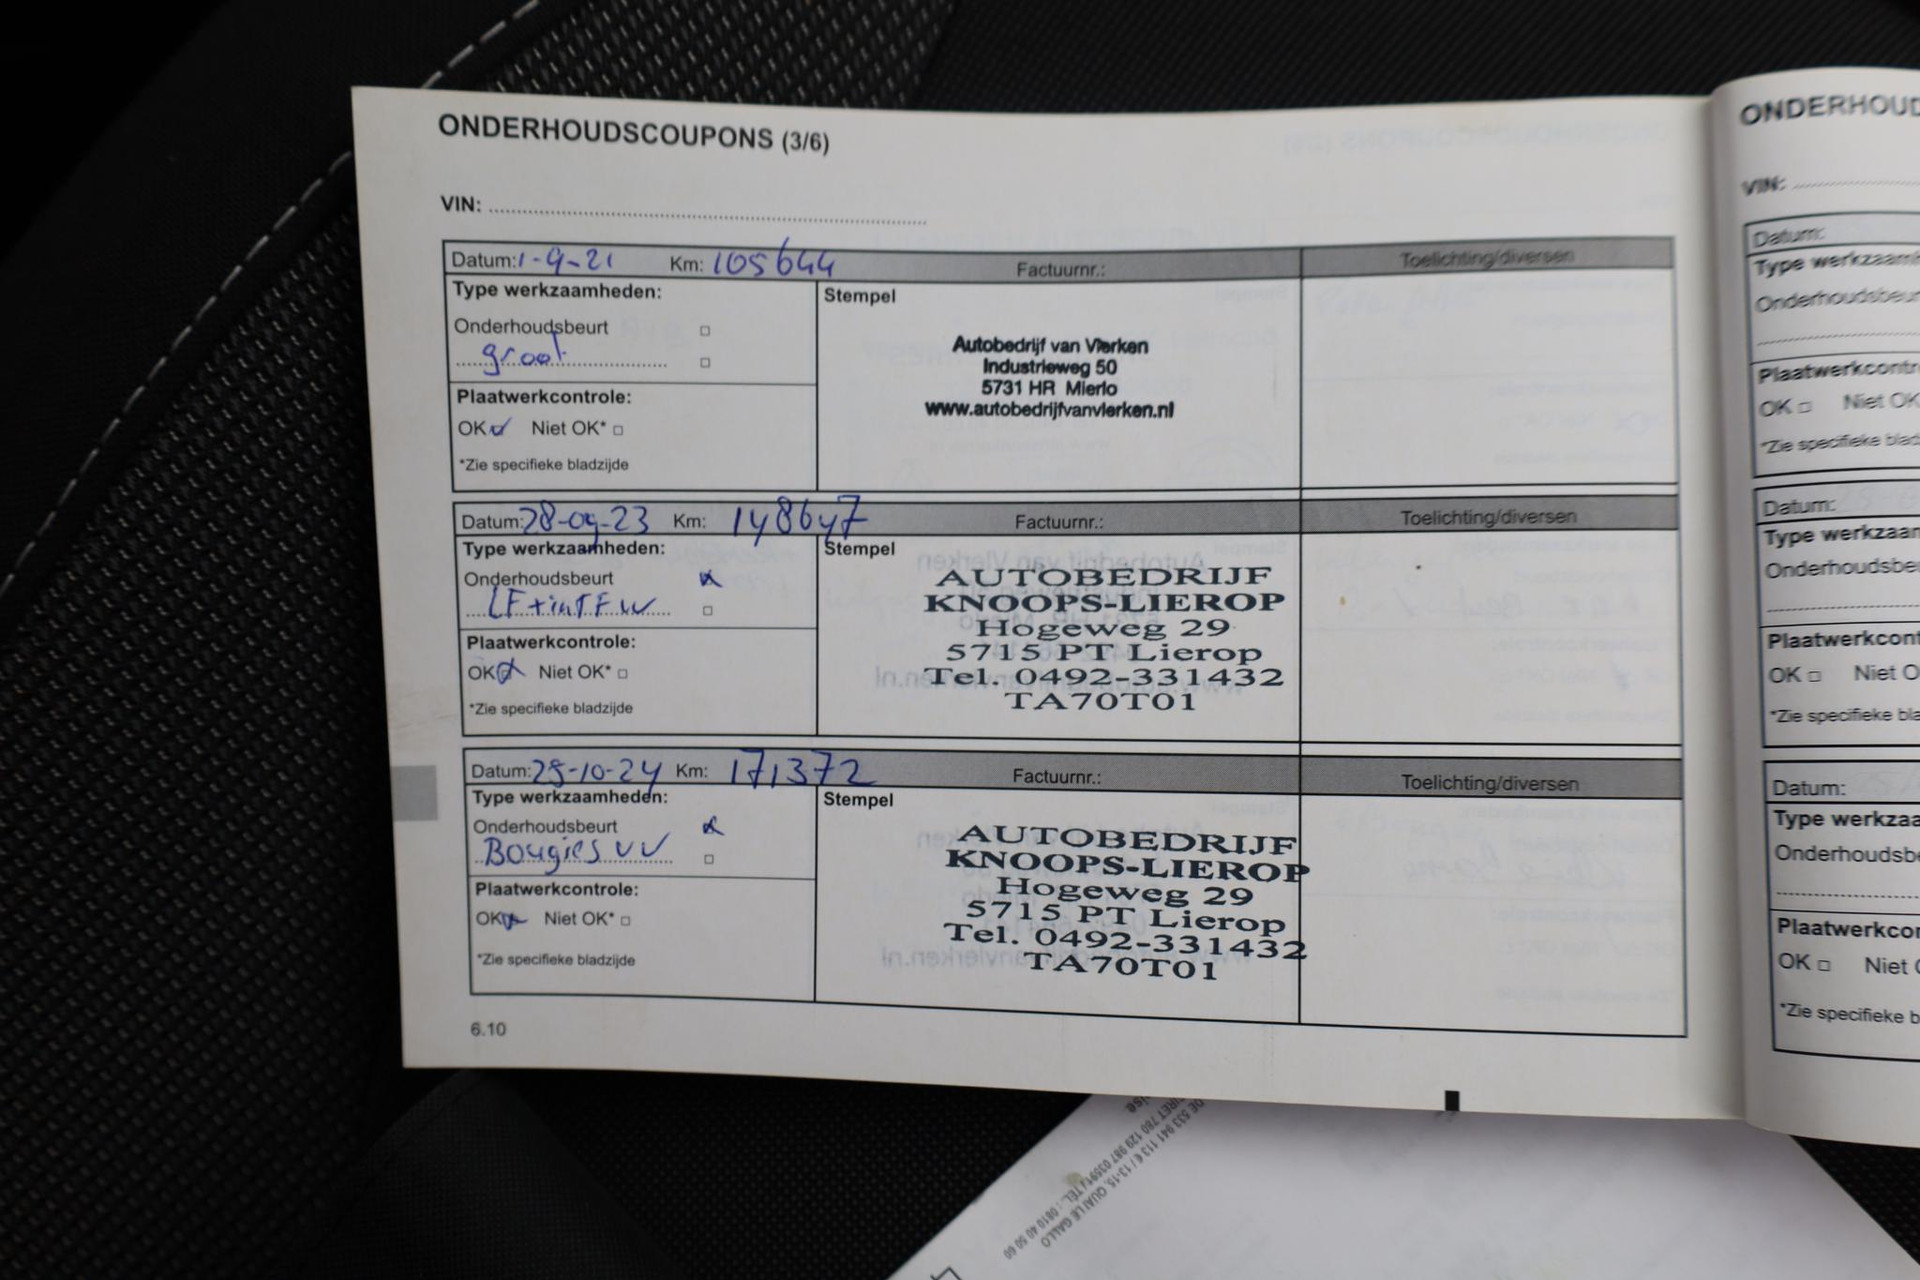 ONDERHOUDSCOUPONS (3/6)
VIN:
Datum: 1-9-21 Km: 105644 Factuurnr.: Toelichting/diversen
Type werkzaamheden:
Stempel
Onderhoudsbeurt
groot
Plaatwerkcontrole:
OK Niet OK*
*Zie specifieke bladzijde
Autobedrijf van Vlerken
Industrieweg 50
5731 HR Mierlo
www.autobedrijfvanvlerken.nl
Datum: 28-09-23 Km: 148647 Factuurnr.: Toelichting/diversen
Type werkzaamheden:
Stempel
Onderhoudsbeurt
LF+intFW
Plaatwerkcontrole:
OK Niet OK*
*Zie specifieke bladzijde
AUTOBEDRIJF
KNOOPS-LIEROP
Hogeweg 29
5715 PT Lierop
Tel. 0492-331432
TA70T01
Datum: 25-10-24 Km: 171372 Factuurnr.: Toelichting/diversen
Type werkzaamheden:
Stempel
Onderhoudsbeurt
Bougies VV
Plaatwerkcontrole:
OK Niet OK*
*Zie specifieke bladzijde
AUTOBEDRIJF
KNOOPS-LIEROP
Hogeweg 29
5715 PT Lierop
Tel. 0492-331432
TA70T01
6.10
ONDERHOUD
VIN:
Datum:
Type werkzaamh
Onderhoudsbeur
Plaatwerkcontr
OK Niet OK
*Zie specifieke blad
Datum:
Type werkzaam
Onderhoudsbe
Plaatwerkcont
OK Niet O
*Zie specifieke bla
Datum:
Type werkzaa
Onderhoudsb
Plaatwerkcor
OK Niet
*Zie specifieke b